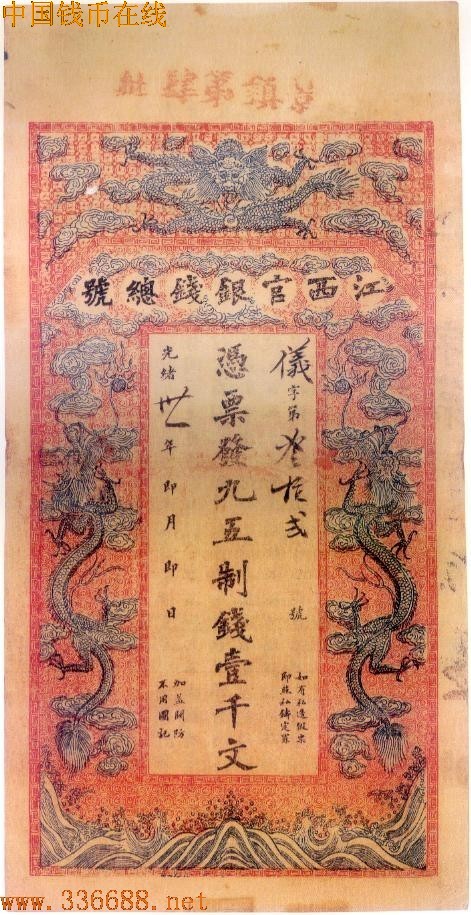 中国钱币在线
江西官銀錢總號
儀字第叁拾弍號
如有私造假票
即照私鑄定罪
憑票發九五制錢壹千文
光緒卅一年即月即日
加蓋關防
不用圖記
www.336688.net